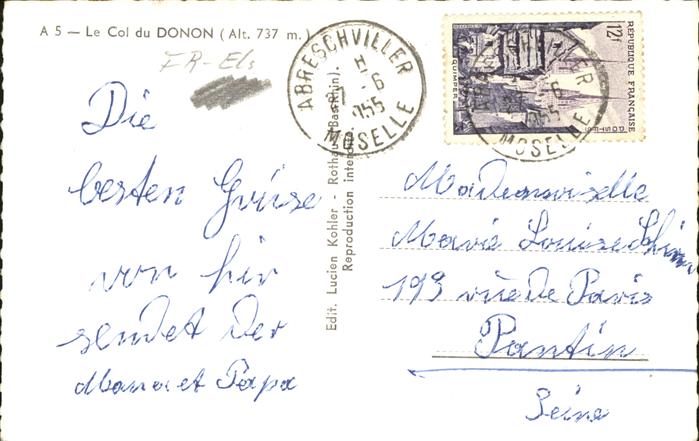 A 5 — Le Col du DONON (Alt. 737 m.)
FR-Els
Die
besten Grüsse
von hir
sendet der
Mama et Papa
Edit. Lucien Kohler - Rothau (Bas-Rhin).
Reproduction interdite.
ABRESCHVILLER
1-6
1955
MOSELLE
12F
REPUBLIQUE FRANÇAISE
POSTES
QUIMPER
MOSELLE
Mademoiselle
Marie Louise
193 rue de Paris
Pantin
Seine